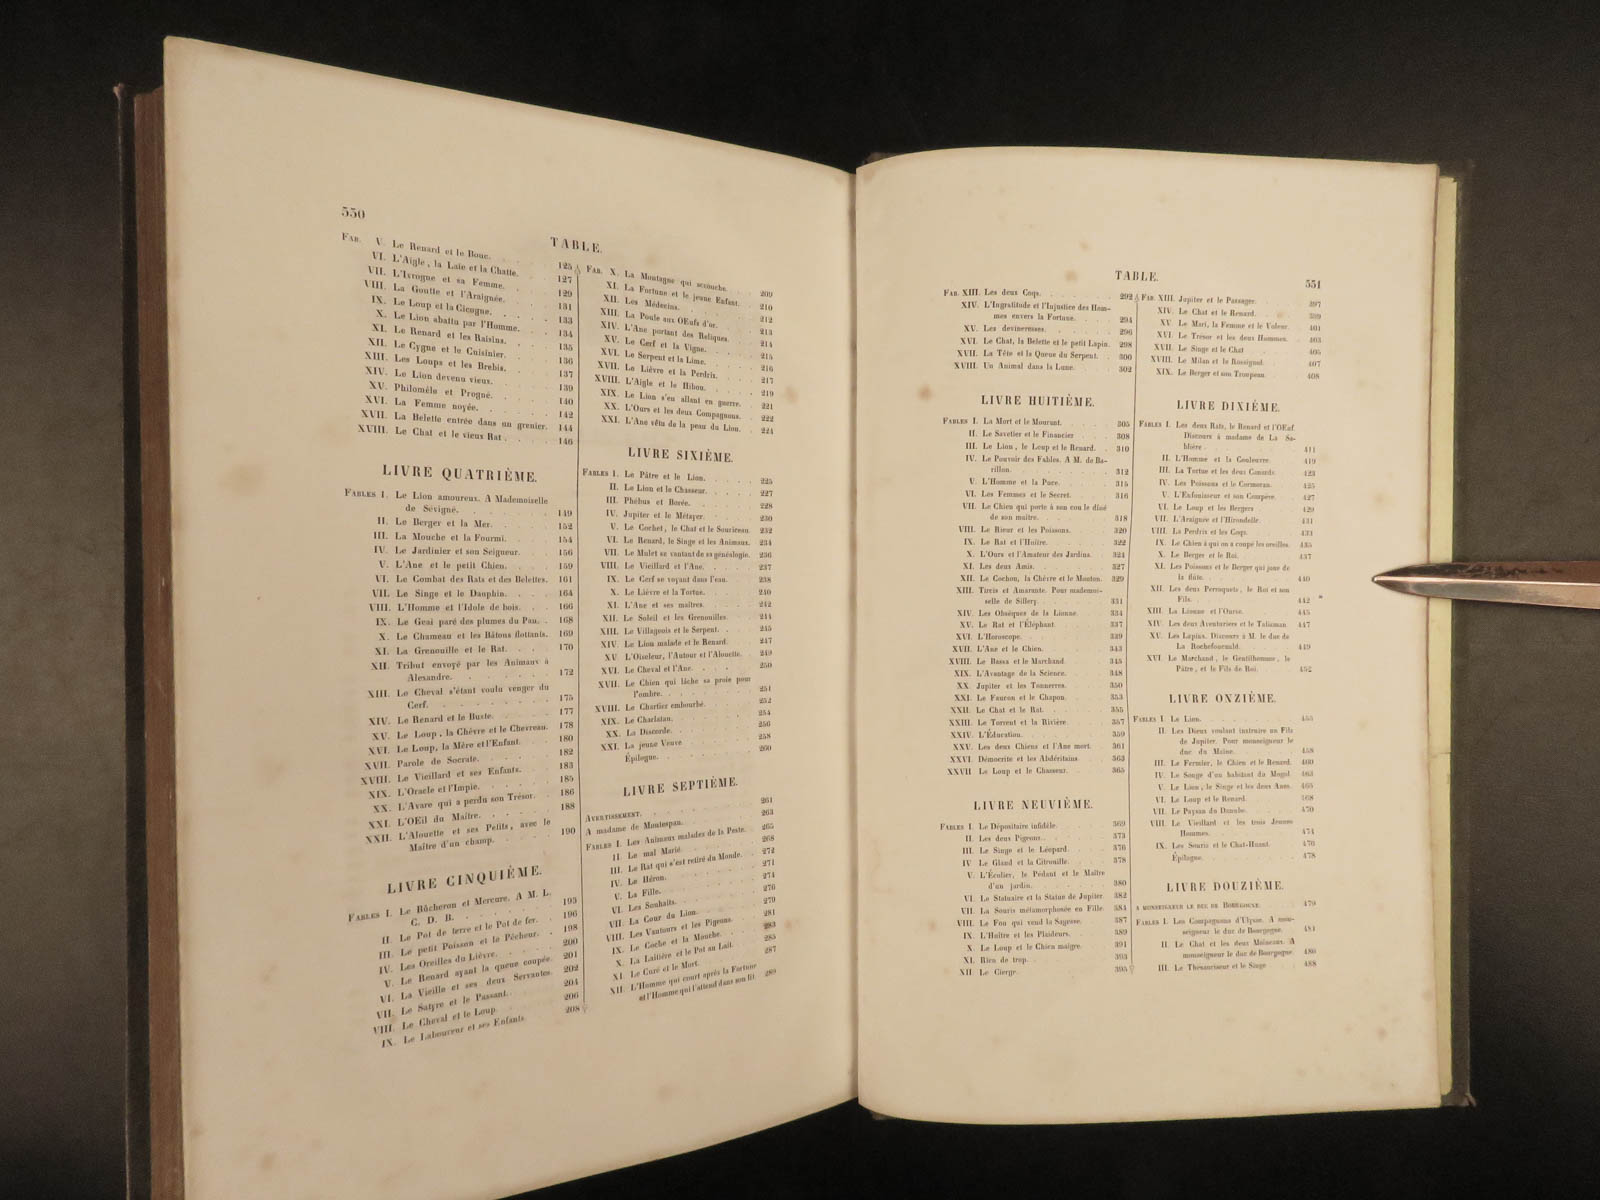 550
TABLE.
FAB. V. Le Renard et le Bouc. 125
VI. L'Aigle, la Laie et la Chatte. 127
VII. L'Ivrogne et sa Femme. 129
VIII. La Goutte et l'Araignée. 131
IX. Le Loup et la Cicogne. 133
X. Le Lion abattu par l'Homme. 134
XI. Le Renard et les Raisins. 135
XII. Le Cygne et le Cuisinier. 136
XIII. Les Loups et les Brebis. 137
XIV. Le Lion devenu vieux. 139
XV. Philomèle et Progné. 140
XVI. La Femme noyée. 142
XVII. La Belette entrée dans un grenier. 144
XVIII. Le Chat et le vieux Rat. 146
LIVRE QUATRIÈME.
FABLES I. Le Lion amoureux. A Mademoiselle
de Sévigné. 149
II. Le Berger et la Mer. 152
III. La Mouche et la Fourmi. 154
IV. Le Jardinier et son Seigneur. 156
V. L'Ane et le petit Chien. 159
VI. Le Combat des Rats et des Belettes. 161
VII. Le Singe et le Dauphin. 164
VIII. L'Homme et l'Idole de bois. 166
IX. Le Geai paré des plumes du Paon. 168
X. Le Chameau et les Bâtons flottants. 169
XI. La Grenouille et le Rat. 170
XII. Tribut envoyé par les Animaux à
Alexandre. 172
XIII. Le Cheval s'étant voulu venger du
Cerf. 175
XIV. Le Renard et le Buste. 177
XV. Le Loup, la Chèvre et le Chevreau. 178
XVI. Le Loup, la Mère et l'Enfant. 180
XVII. Parole de Socrate. 182
XVIII. Le Vieillard et ses Enfants. 183
XIX. L'Oracle et l'Impie. 185
XX. L'Avare qui a perdu son Trésor. 186
XXI. L'OEil du Maître. 188
XXII. L'Alouette et ses Petits, avec le
Maître d'un champ. 190
LIVRE CINQUIÈME.
FABLES I. Le Bûcheron et Mercure. A M. L.
C. D. B. 193
II. Le Pot de terre et le Pot de fer. 196
III. Le petit Poisson et le Pêcheur. 198
IV. Les Oreilles du Lièvre. 200
V. Le Renard ayant la queue coupée. 201
VI. La Vieille et ses deux Servantes. 202
VII. Le Satyre et le Passant. 204
VIII. Le Cheval et le Loup. 206
IX. Le Laboureur et ses Enfants. 208
FAB. X. La Montagne qui accouche. 209
XI. La Fortune et le jeune Enfant. 210
XII. Les Médecins. 212
XIII. La Poule aux OEufs d'or. 213
XIV. L'Ane portant des Reliques. 214
XV. Le Cerf et la Vigne. 215
XVI. Le Serpent et la Lime. 216
XVII. Le Lièvre et la Perdrix. 217
XVIII. L'Aigle et le Hibou. 219
XIX. Le Lion s'en allant en guerre. 221
XX. L'Ours et les deux Compagnons. 222
XXI. L'Ane vêtu de la peau du Lion. 224
LIVRE SIXIÈME.
FABLES I. Le Pâtre et le Lion. 225
II. Le Lion et le Chasseur. 227
III. Phébus et Borée. 228
IV. Jupiter et le Métayer. 230
V. Le Cochet, le Chat et le Souriceau 232
VI. Le Renard, le Singe et les Animaux. 234
VII. Le Mulet se vantant de sa généalogie. 236
VIII. Le Vieillard et l'Ane. 237
IX. Le Cerf se voyant dans l'eau. 238
X. Le Lièvre et la Tortue. 240
XI. L'Ane et ses maîtres. 242
XII. Le Soleil et les Grenouilles. 244
XIII. Le Villageois et le Serpent. 245
XIV. Le Lion malade et le Renard. 247
XV. L'Oiseleur, l'Autour et l'Alouette. 249
XVI. Le Cheval et l'Ane. 250
XVII. Le Chien qui lâche sa proie pour
l'ombre. 251
XVIII. Le Chartier embourbé. 252
XIX. Le Charlatan. 254
XX. La Discorde. 256
XXI. La jeune Veuve 258
Épilogue. 260
LIVRE SEPTIÈME.
AVERTISSEMENT. 261
A madame de Montespan. 263
FABLES I. Les Animaux malades de la Peste. 265
II. Le mal Marié. 268
III. Le Rat qui s'est retiré du Monde. 272
IV. Le Héron. 271
V. La Fille. 274
VI. Les Souhaits. 276
VII. La Cour du Lion. 279
VIII. Les Vautours et les Pigeons. 281
IX. Le Coche et la Mouche. 283
X. La Laitière et le Pot au Lait. 285
XI. Le Curé et le Mort. 287
XII. L'Homme qui court après la Fortune
et l'Homme qui l'attend dans son lit. 289
TABLE.
551
FAB. XIII. Les deux Coqs. 292
XIV. L'Ingratitude et l'Injustice des Hom-
mes envers la Fortune. 294
XV. Les devineresses. 296
XVI. Le Chat, la Belette et le petit Lapin. 298
XVII. La Tête et la Queue du Serpent. 300
XVIII. Un Animal dans la Lune. 302
LIVRE HUITIÈME.
FABLES I. La Mort et le Mourant. 305
II. Le Savetier et le Financier 308
III. Le Lion, le Loup et le Renard. 310
IV. Le Pouvoir des Fables. A M. de Ba-
rillon. 312
V. L'Homme et la Puce. 315
VI. Les Femmes et le Secret. 316
VII. Le Chien qui porte à son cou le dîné
de son maître. 318
VIII. Le Rieur et les Poissons. 320
IX. Le Rat et l'Huître. 322
X. L'Ours et l'Amateur des Jardins. 324
XI. Les deux Amis. 327
XII. Le Cochon, la Chèvre et le Mouton. 329
XIII. Tircis et Amarante. Pour mademoi-
selle de Sillery. 331
XIV. Les Obsèques de la Lionne. 334
XV. Le Rat et l'Éléphant. 337
XVI. L'Horoscope. 339
XVII. L'Ane et le Chien. 343
XVIII. Le Bassa et le Marchand. 345
XIX. L'Avantage de la Science. 348
XX. Jupiter et les Tonnerres. 350
XXI. Le Faucon et le Chapon. 353
XXII. Le Chat et le Rat. 355
XXIII. Le Torrent et la Rivière. 357
XXIV. L'Éducation. 359
XXV. Les deux Chiens et l'Ane mort. 361
XXVI. Démocrite et les Abdéritains. 363
XXVII Le Loup et le Chasseur. 365
LIVRE NEUVIÈME.
FABLES I. Le Dépositaire infidèle. 369
II. Les deux Pigeons. 373
III. Le Singe et le Léopard. 376
IV Le Gland et la Citrouille. 378
V. L'Écolier, le Pédant et le Maître
d'un jardin. 380
VI. Le Statuaire et la Statue de Jupiter. 382
VII. La Souris métamorphosée en Fille. 384
VIII. Le Fou qui vend la Sagesse. 387
IX. L'Huître et les Plaideurs. 389
X. Le Loup et le Chien maigre. 391
XI. Rien de trop. 393
XII. Le Cierge. 395
FAB. XIII. Jupiter et le Passager. 397
XIV. Le Chat et le Renard. 399
XV. Le Mari, la Femme et le Voleur. 401
XVI. Le Trésor et les deux Hommes. 403
XVII. Le Singe et le Chat 405
XVIII. Le Milan et le Rossignol. 407
XIX. Le Berger et son Troupeau. 408
LIVRE DIXIÈME.
FABLES I. Les deux Rats, le Renard et l'OEuf.
Discours à madame de La Sa-
blière. 411
II. L'Homme et la Couleuvre. 419
III. La Tortue et les deux Canards. 423
IV. Les Poissons et le Cormoran. 425
V. L'Enfouisseur et son Compère. 427
VI. Le Loup et les Bergers 429
VII. L'Araignée et l'Hirondelle. 431
VIII. La Perdrix et les Coqs. 433
IX. Le Chien à qui on a coupé les oreilles. 435
X. Le Berger et le Roi. 437
XI. Les Poissons et le Berger qui joue de
la flûte. 440
XII. Les deux Perroquets, le Roi et son
Fils. 442
XIII. La Lionne et l'Ourse. 445
XIV. Les deux Aventuriers et le Talisman. 447
XV. Les Lapins. Discours à M. le duc de
La Rochefoucauld. 449
XVI Le Marchand, le Gentilhomme, le
Pâtre, et le Fils de Roi. 452
LIVRE ONZIÈME.
FABLES I. Le Lion. 455
II. Les Dieux voulant instruire un Fils
de Jupiter. Pour monseigneur le
duc du Maine. 458
III. Le Fermier, le Chien et le Renard. 460
IV. Le Songe d'un habitant du Mogol. 463
V. Le Lion, le Singe et les deux Anes. 465
VI. Le Loup et le Renard. 468
VII. Le Paysan du Danube. 470
VIII. Le Vieillard et les trois Jeunes
Hommes. 474
IX. Les Souris et le Chat-Huant. 476
Épilogue. 478
LIVRE DOUZIÈME.
A MONSEIGNEUR LE DUC DE BOURGOGNE. 479
FABLES I. Les Compagnons d'Ulysse. A mon-
seigneur le duc de Bourgogne. 481
II. Le Chat et les deux Moineaux. A
monseigneur le duc de Bourgogne. 486
III. Le Thésauriseur et le Singe 488